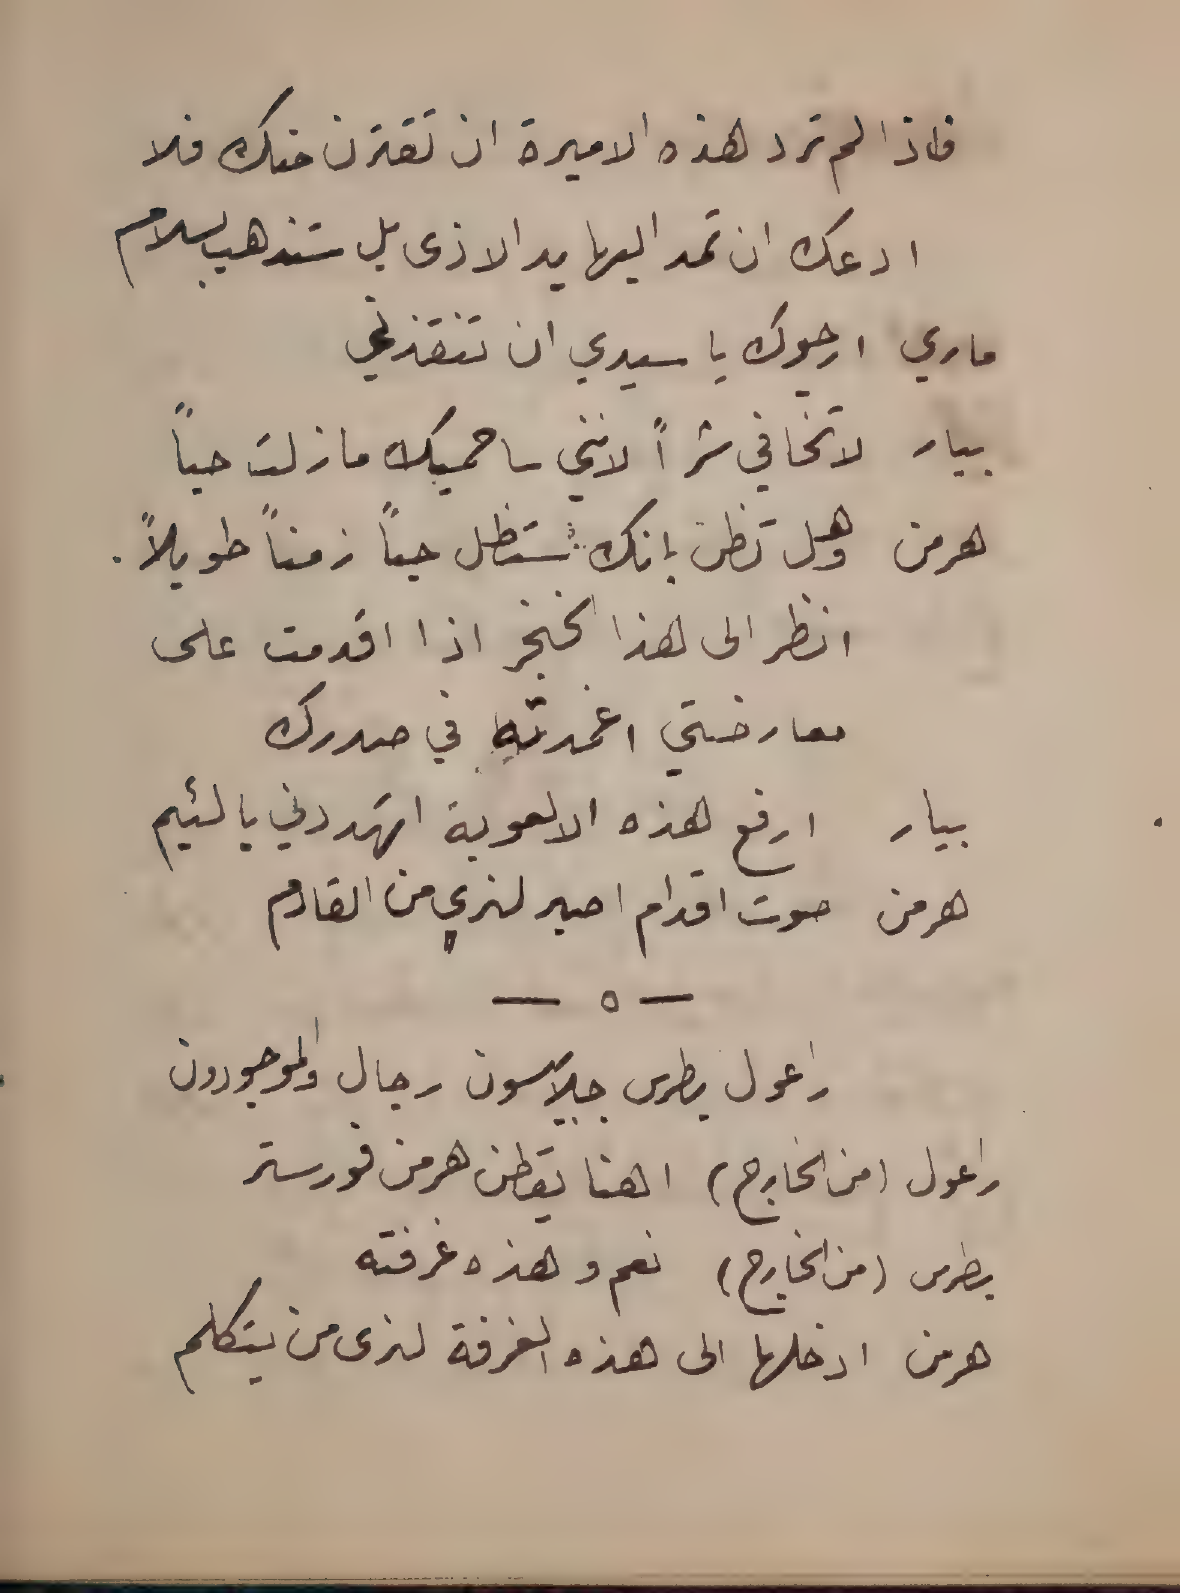 فاذا لم ترد هذه الاميرة ان تقترن منك فلا
ادعك ان تمد اليها يد الاذى بل ستذهب بسلام
ماري ارجوك يا سيدي ان تنقذني
بيار لا تخافي شراً لانني ساحميك ما زلت حياً
هرمن وهل تظن بانك ستظل حياً زمناً طويلاً .
انظر الى هذا الخنجر اذا اقدمت على
معارضتي اغمدته في صدرك
بيار ارفع هذه الالعوبة اتهددني يا لئيم
هرمن صوت اقدام اصبر لنري من القادم
— ٥ —
راعول بطرس جيلاسون رجال والموجودون
راعول (من الخارج) اهنا يقطن هرمن فورستر
بطرس (من الخارج) نعم وهذه غرفته
هرمن ادخلها الى هذه الغرفة لنرى من يتكلم